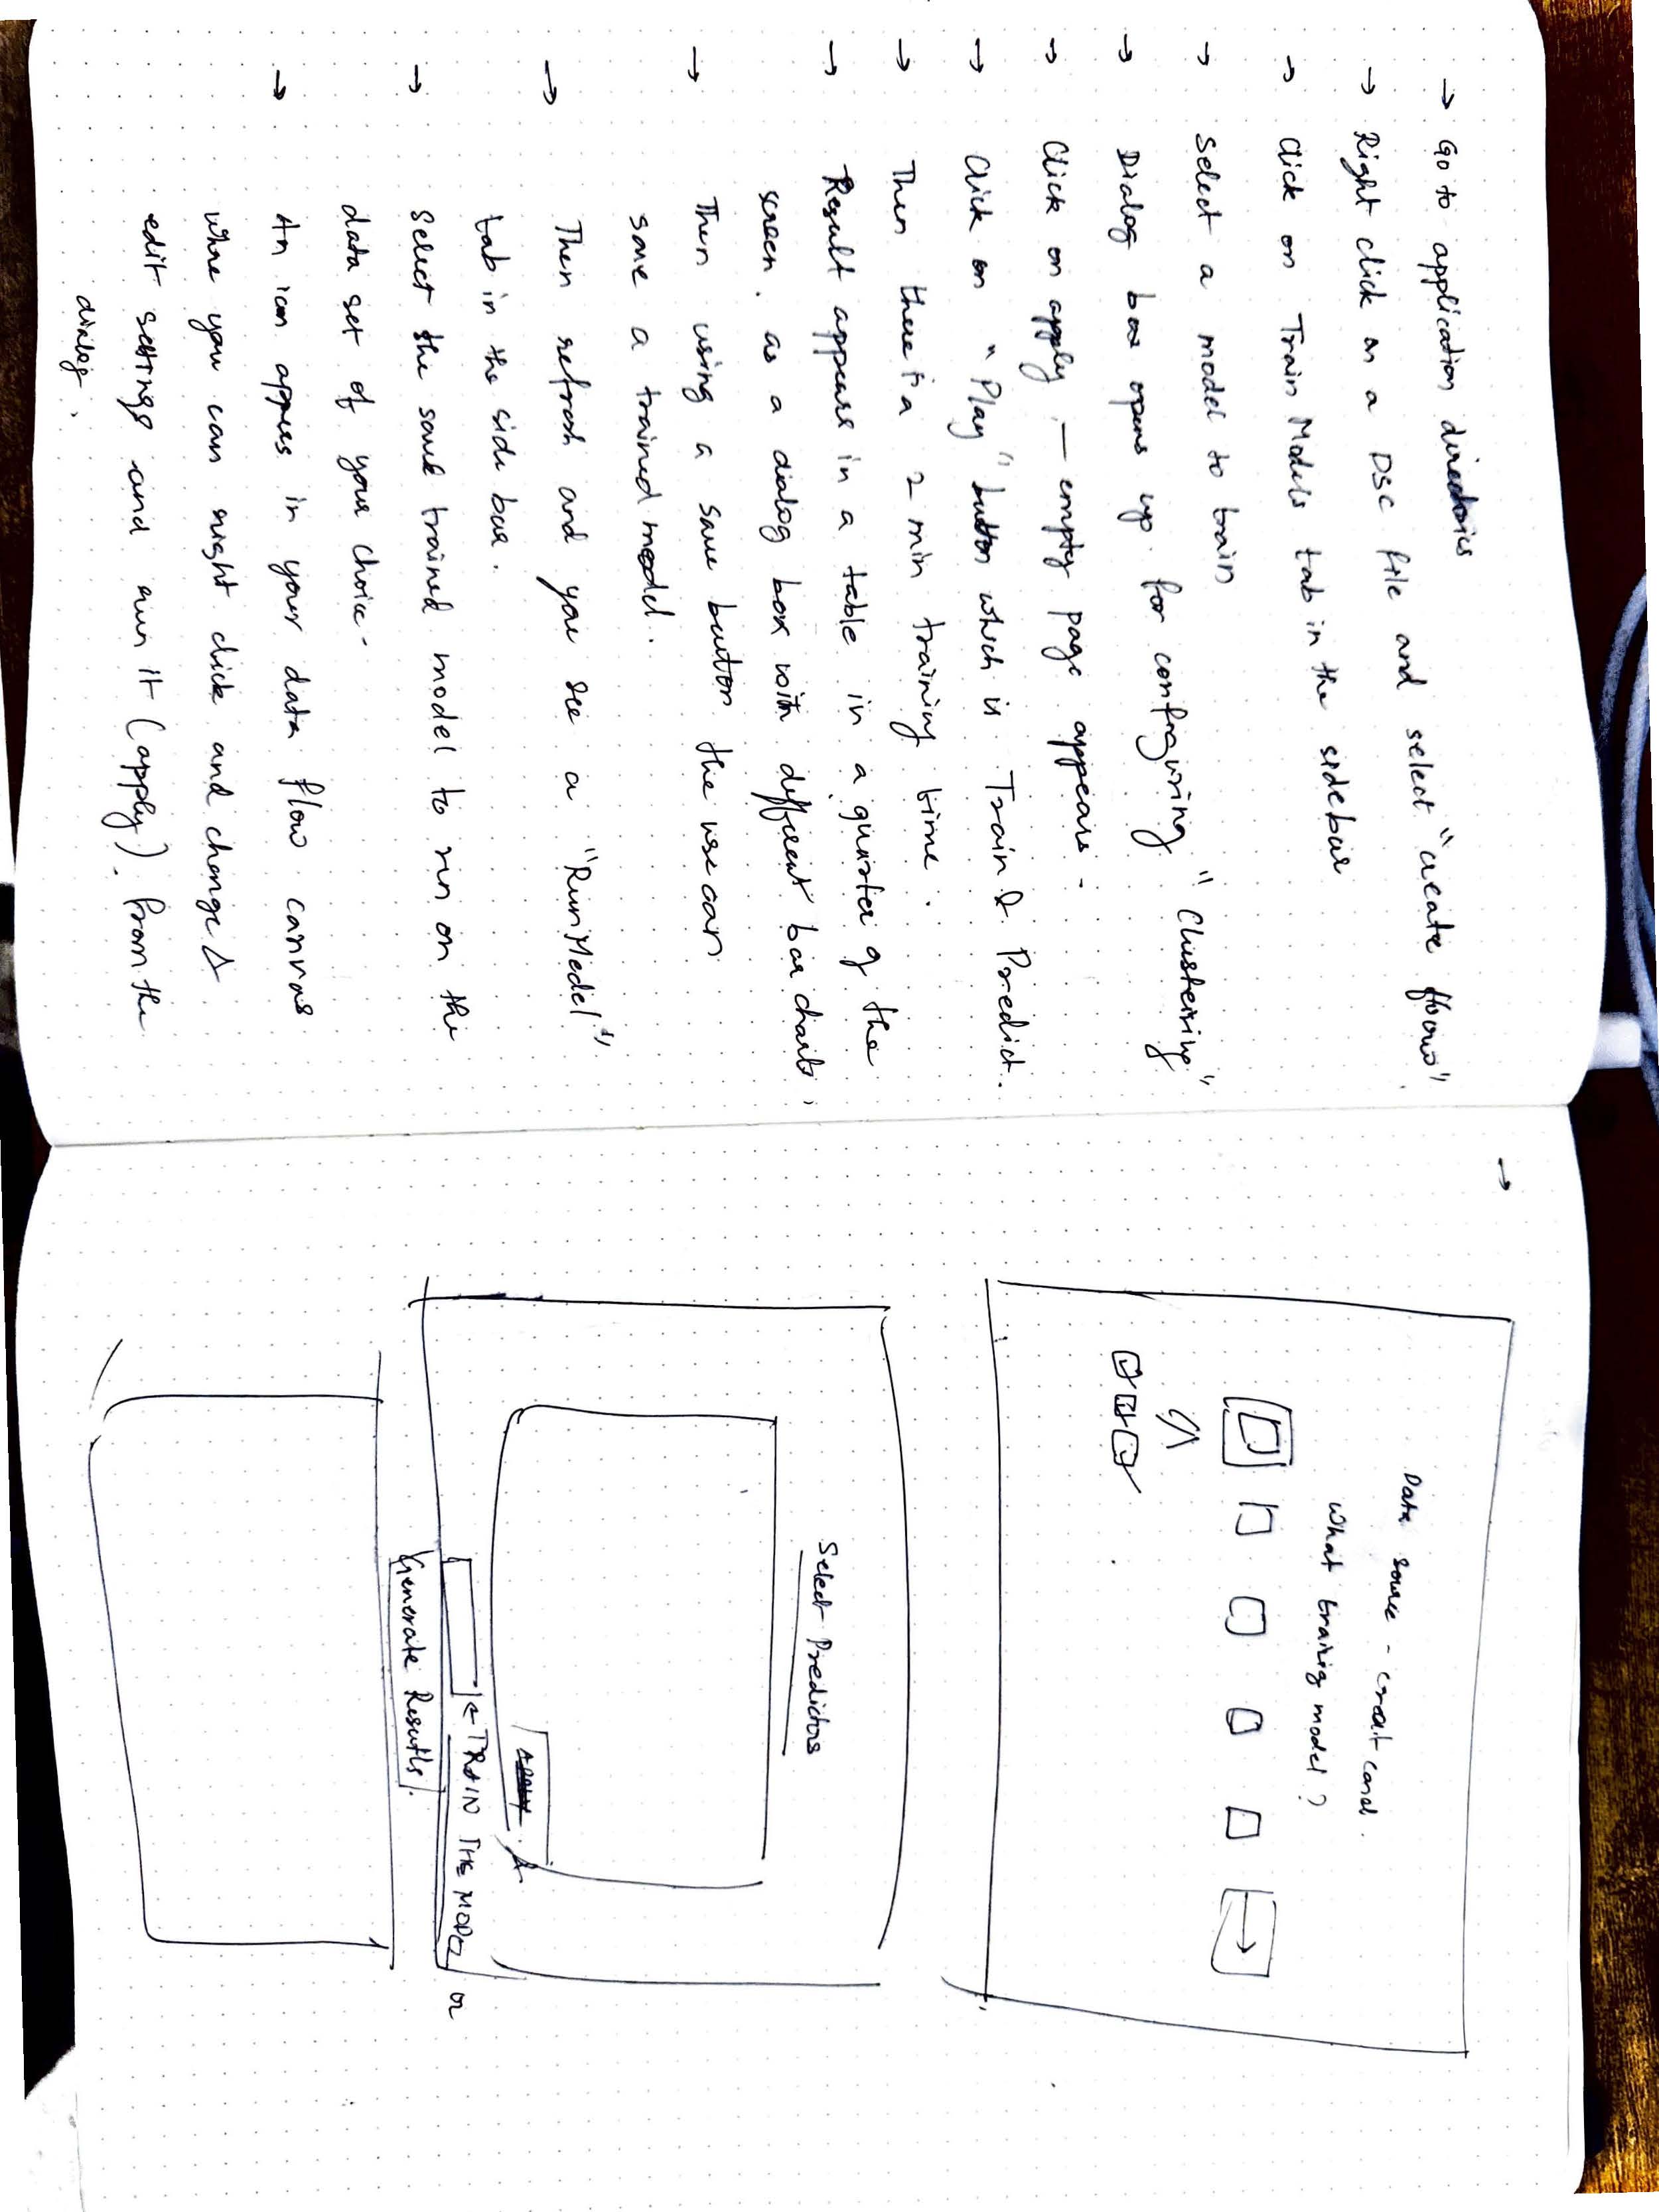 → Go to application directories
→ Right click on a DSC file and select "create flows"
→ Click on Train Models tab in the sidebar
→ Select a model to train
→ Dialog box opens up for configuring "Clustering"
→ Click on apply — empty page appears.
→ Click on "Play" button which is Train & Predict.
→ Then there is a 2 min training time.
→ Result appears in a table in a quarter of the
screen. as a dialog box with different bar charts.
→ Then using a save button the use can
save a trained model.
→ Then refresh and you see a "Run Model"
tab in the side bar.
→ Select the saved trained model to run on the
data set of your choice.
→ An icon appears in your data flow canvas
where you can right click and change Δ
edit settings and run it (apply). from the
dialog.
→
Data source - credit card.
What training model?
Select Predictors
← TRAIN THE MODEL or
Generate Results.